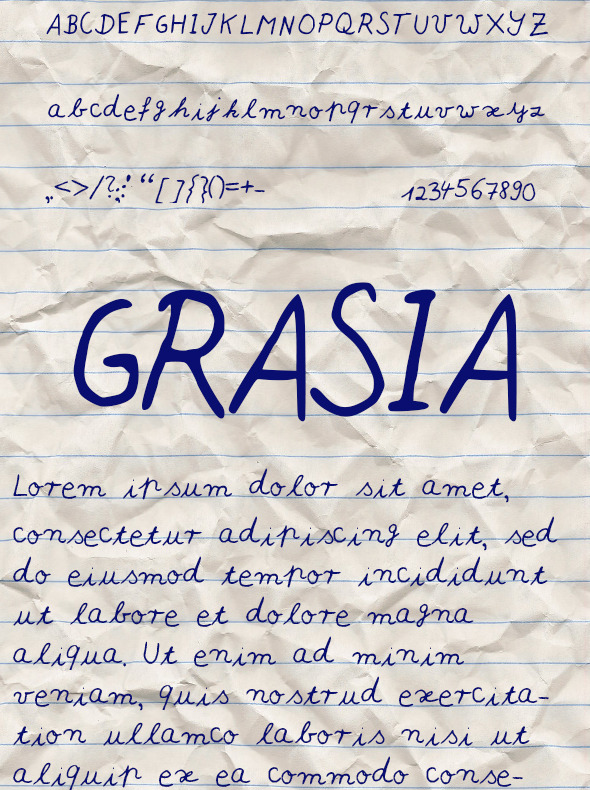 ABCDEFGHIJKLMNOPQRSTUVWXYZ
abcdefghijklmnopqrstuvwxyz
,,<>/?:;! “[]{}()=+-
1234567890
GRASIA
Lorem ipsum dolor sit amet,
consectetur adipiscing elit, sed
do eiusmod tempor incididunt
ut labore et dolore magna
aliqua. Ut enim ad minim
veniam, quis nostrud exercita-
tion ullamco laboris nisi ut
aliquip ex ea commodo conse-